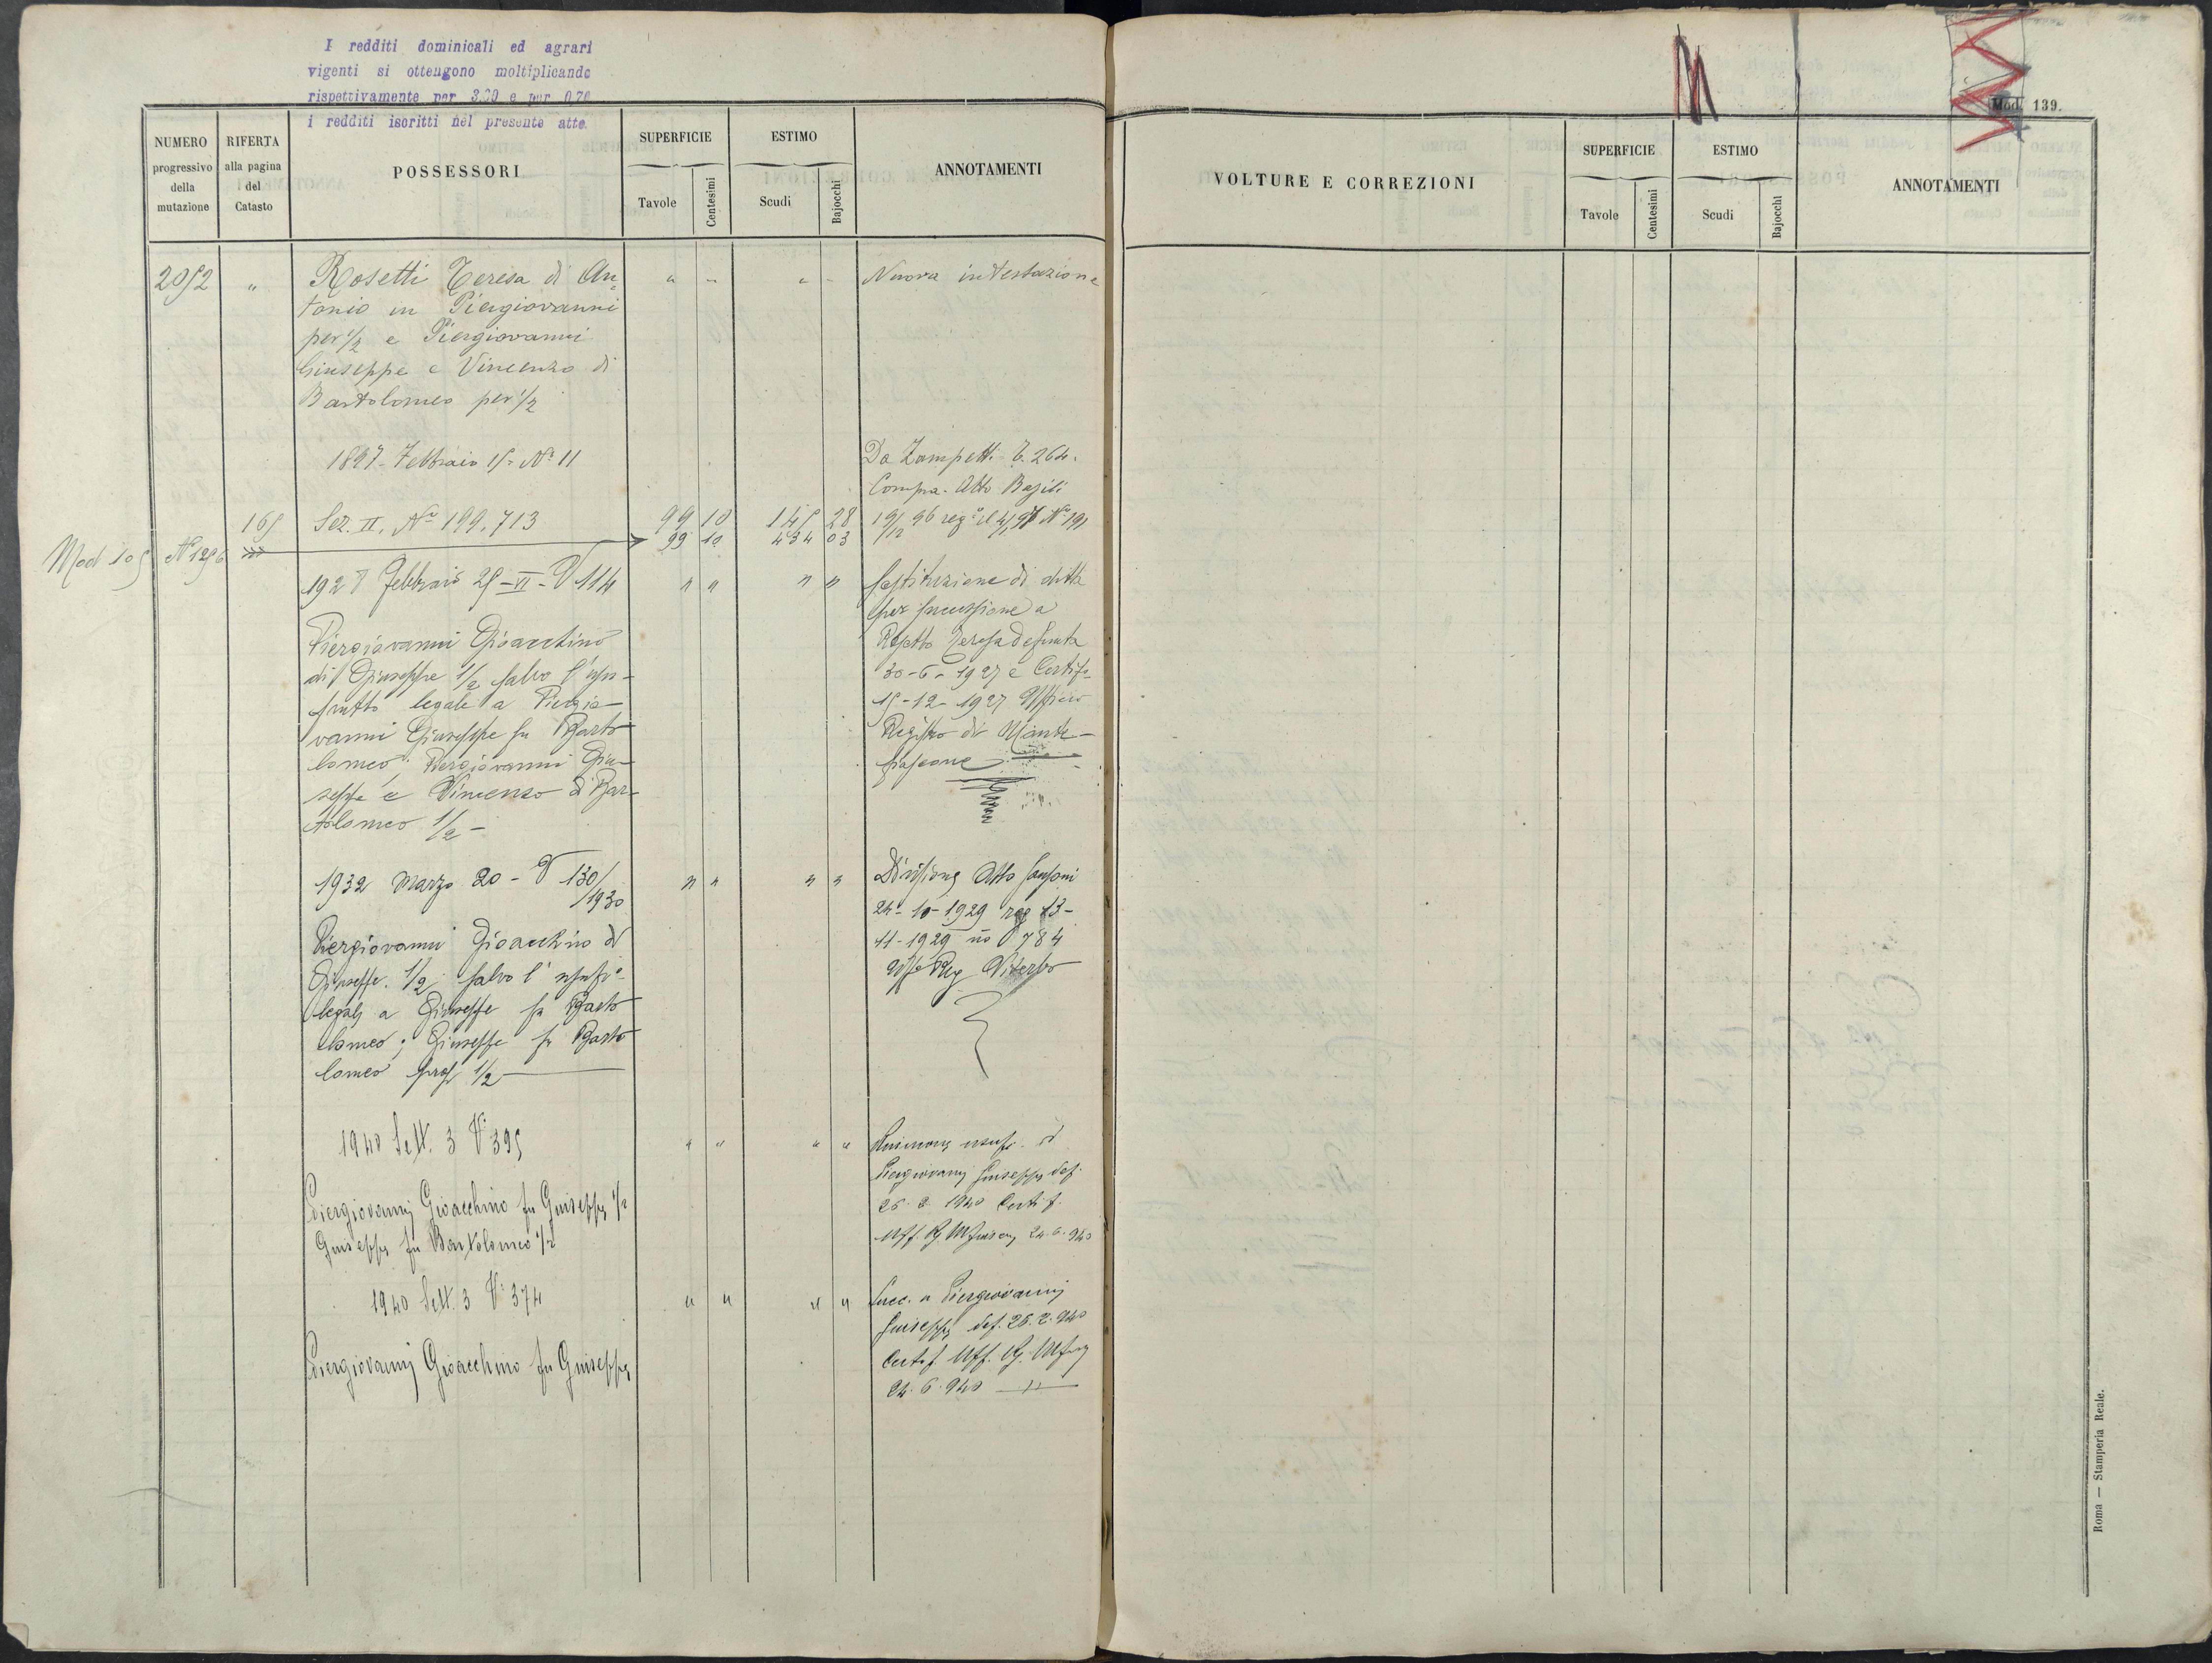 I redditi dominicali ed agrari
vigenti si ottengono moltiplicando
rispettivamente per 3.30 e per 0.70
i redditi iscritti nel presente atto.
Mod. 139.
NUMERO progressivo della mutazione
RIFERTA alla pagina del Catasto
POSSESSORI
SUPERFICIE
Tavole
Centesimi
ESTIMO
Scudi
Bajocchi
ANNOTAMENTI
VOLTURE E CORREZIONI
SUPERFICIE
Tavole
Centesimi
ESTIMO
Scudi
Bajocchi
ANNOTAMENTI
2052 " Rosetti Teresa di An= " " " " Nuova intestazione
tonio in Piergiovanni
per 1/2 e Piergiovanni
Giuseppe e Vincenzo di
Bartolomeo per 1/2
1897 - Febbraio 15 - N° 11
Da Zampetti 264.
Compra. Atto
165 Sez. II. N° 199. 713 99 10 145 28 19/12 96 reg° il N° 191
Mod 105 N° 1296 99 10 434 03
1928 Febbraio 25 - VI - V 114 " " " " Sostituzione di ditta
per successione a
Teresa defunta
30-6-1927 e Certif.
15-12-1927 Ufficio
Registro di Monte-
fiascone
Piergiovanni Gioacchino
di Giuseppe 1/2 salvo l'usu-
frutto legale a Piergio-
vanni Giuseppe fu Barto
lomeo; Piergiovanni Giu-
seppe e Vincenzo di Bar-
tolomeo 1/2 -
1932 Marzo 20 - V 130/1930 " " " " Divisione Atto Sansoni
24-10-1929 reg 13-
11-1929 no 784
Reg Viterbo
Piergiovanni Gioacchino di
Giuseppe. 1/2 salvo l'usufr°
legale a Giuseppe fu Barto
lomeo; Giuseppe fu Barto
lomeo 1/2
1940 Sett. 3 V. 395 " " " " Riunione usufr. di
Piergiovanni Giuseppe def.
26. 2. 1940 Certif.
Uff. Rg 24.6.940
Piergiovanni Gioacchino fu Giuseppe 1/2
Giuseppe fu Bartolomeo 1/2
1940 Sett. 3 V. 374 " " " " Succ. a Piergiovanni
Giuseppe def. 26.2.940
Certif Uff. Rg.
24.6.940
Piergiovanni Gioacchino fu Giuseppe
Roma — Stamperia Reale.